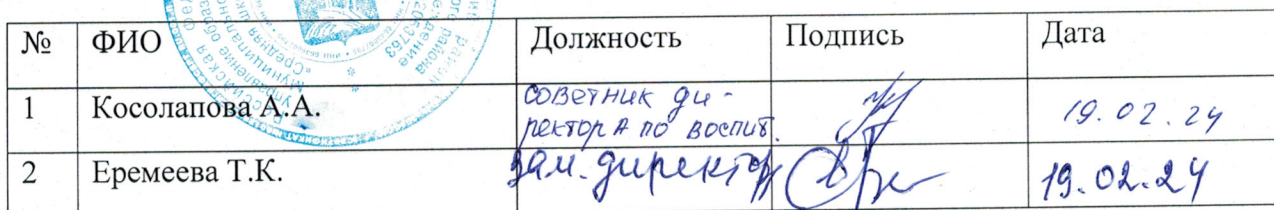 № ФИО Должность Подпись Дата
1 Косолапова А.А. советник ди-
ректора по воспит. 19.02.24
2 Еремеева Т.К. зам. директор 19.02.24